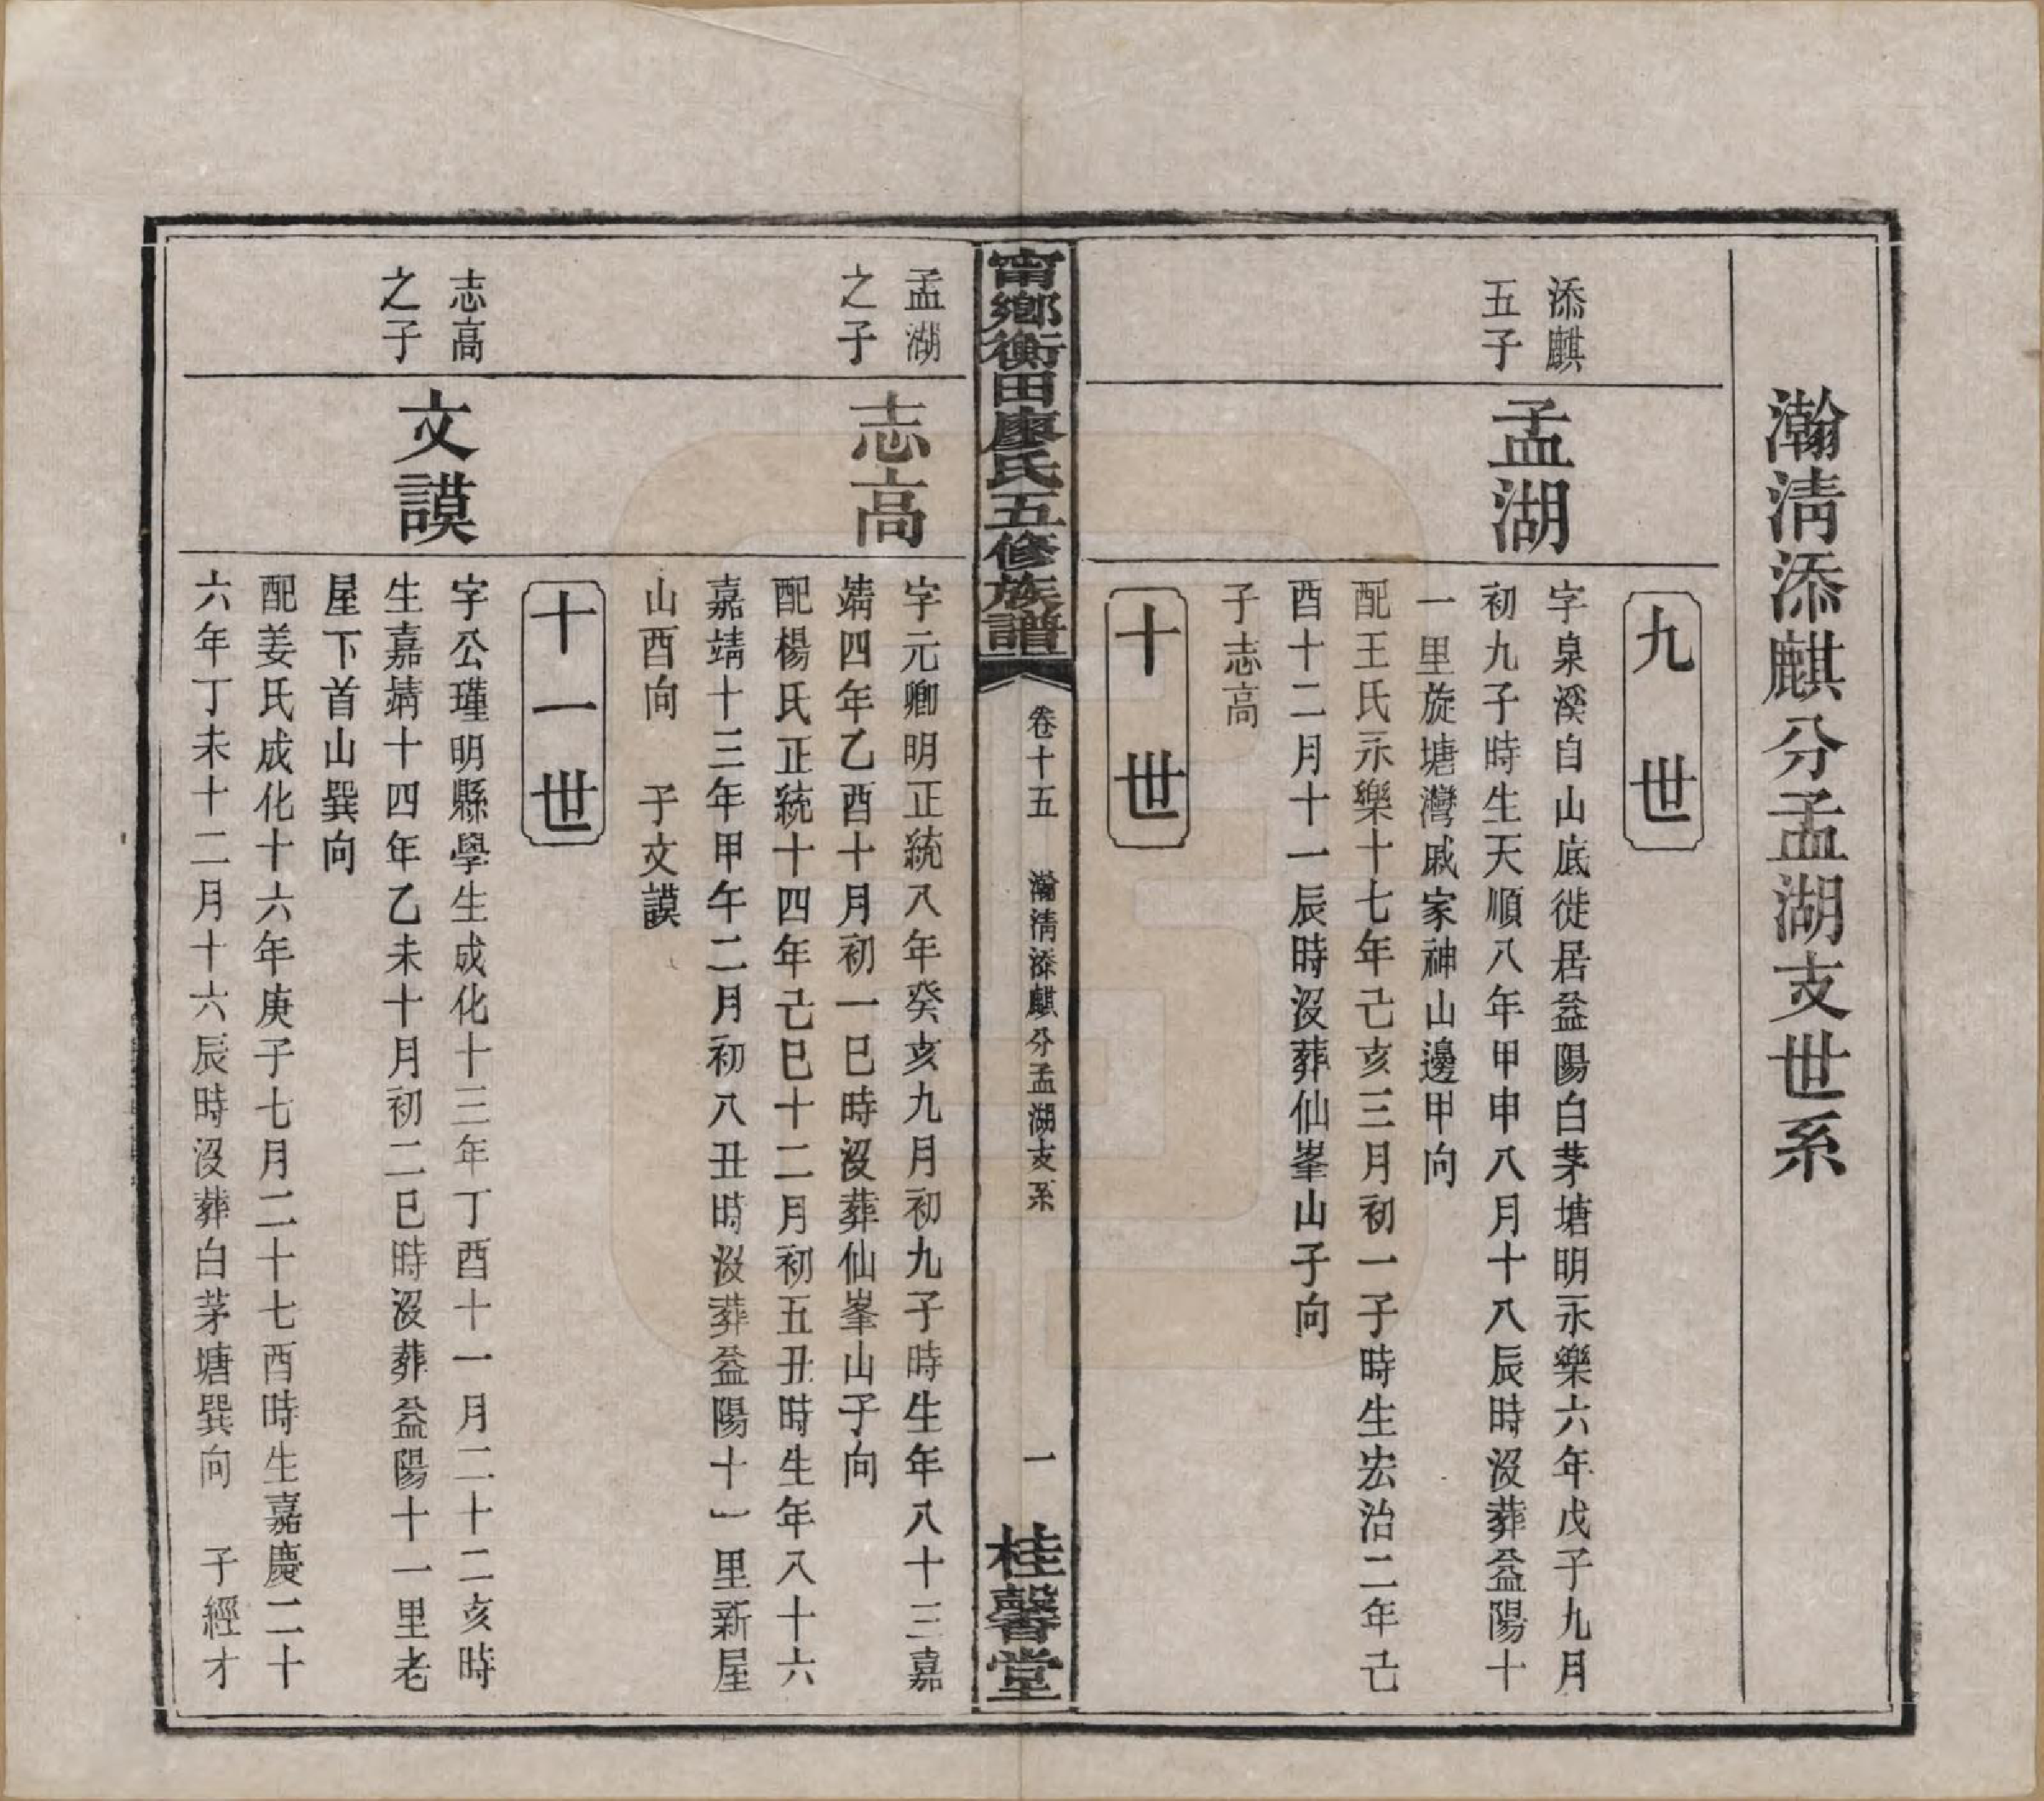 瀚淸添麒分孟湖支世系
九世
添麒
五子
孟湖
字臬溪自山底徙居益陽白茅塘明永樂六年戊子九月
初九子時生天順八年甲申八月十八辰時沒葬益陽十
一里旋塘灣戚家神山邊甲向
配王氏永樂十七年己亥三月初一子時生宏治二年己
酉十二月十一辰時沒葬仙峯山子向
子志高
十世
甯鄉衡田廖氏五修族譜
卷十五
瀚淸添麒分孟湖支系
一
桂馨堂
孟湖
之子
志高
字元卿明正統八年癸亥九月初九子時生年八十三嘉
靖四年乙酉十月初一巳時沒葬仙峯山子向
配楊氏正統十四年己巳十二月初五丑時生年八十六
嘉靖十三年甲午二月初八丑時沒葬益陽十一里新屋
山酉向 子文謨
十一世
志高
之子
文謨
字公瑾明縣學生成化十三年丁酉十一月二十二亥時
生嘉靖十四年乙未十月初二巳時沒葬益陽十一里老
屋下首山巽向
配姜氏成化十六年庚子七月二十七酉時生嘉慶二十
六年丁未十二月十六辰時沒葬白茅塘巽向 子經才